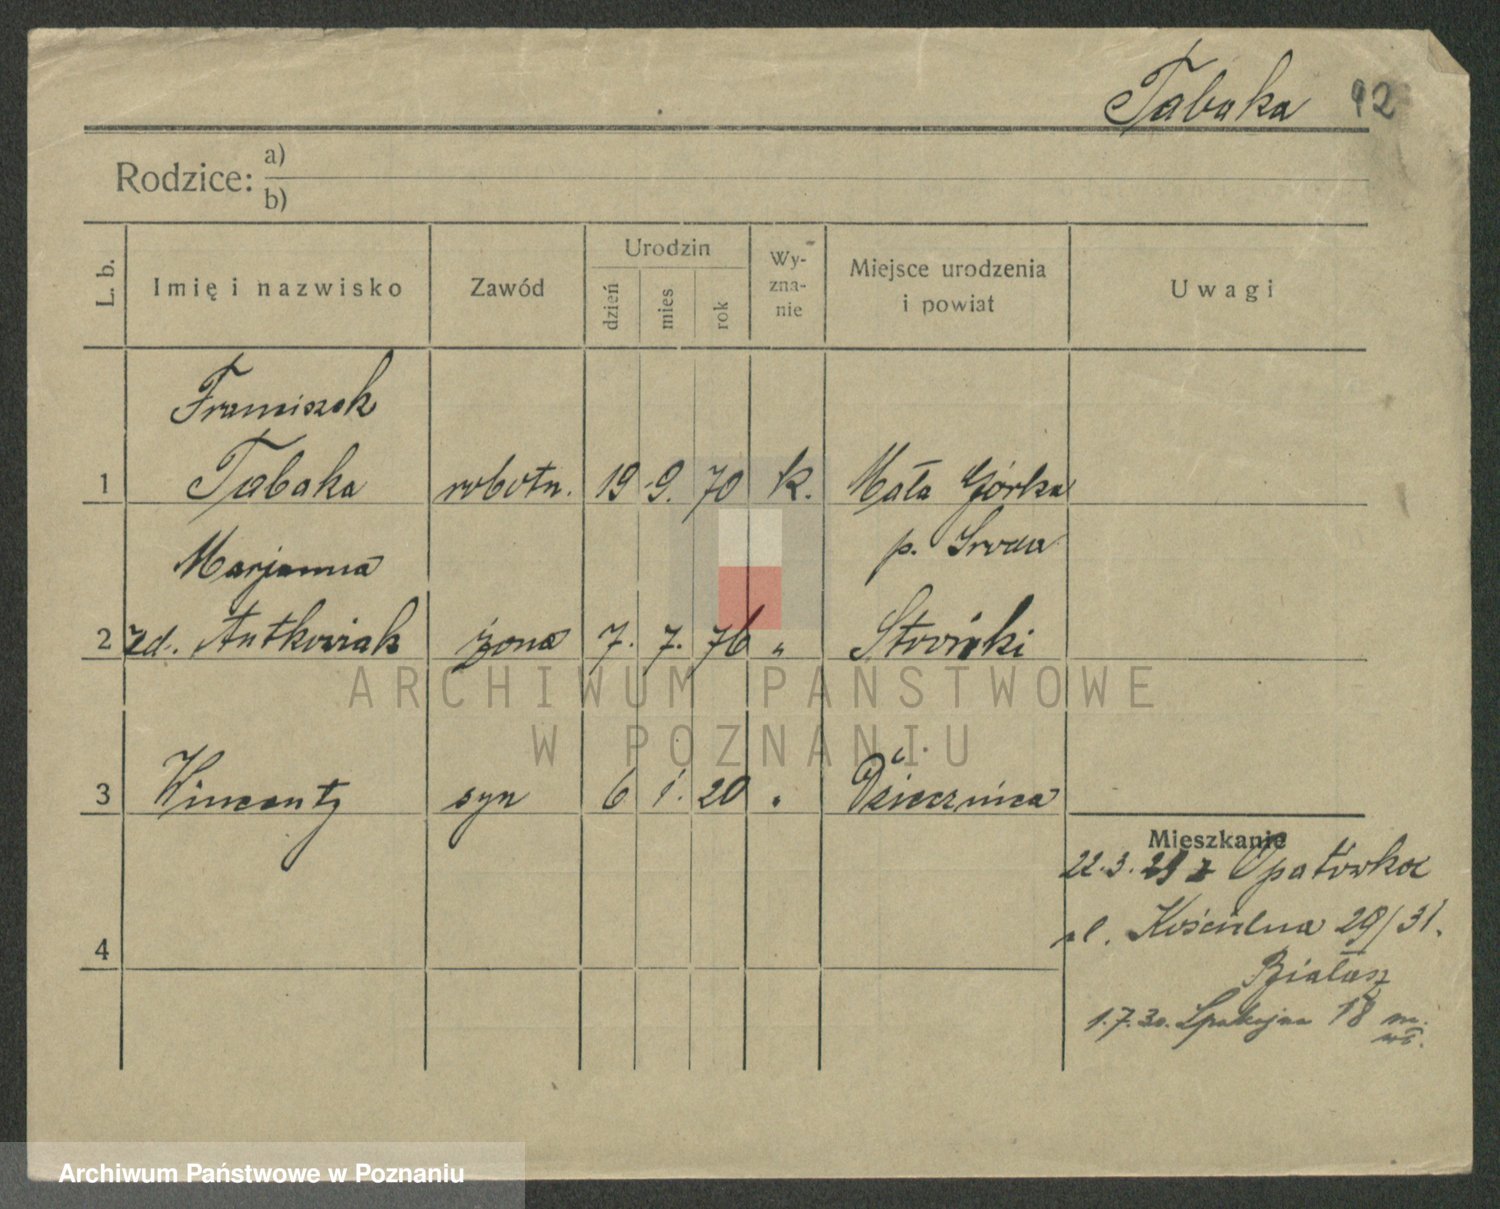 Tabaka 92
Rodzice: a)
b)
L. b. Imię i nazwisko Zawód Urodzin dzień mies rok Wy-zna-nie Miejsce urodzenia i powiat Uwagi
Franciszek
1 Tabaka robotn. 19 9. 70 k. Mała Górka
p. Środa
Marjanna
2 zd. Antkowiak żona 7. 7. 76 "
3 Wincenty syn 6 1. 20 " Dziećmica
Mieszkanie
22.3. z Opatówka
ul. Kościelna 29/31.
Białasz
4
1.7.30. Spokojna 18 m.
wł.
ARCHIWUM PAŃSTWOWE
W POZNANIU
Archiwum Państwowe w Poznaniu